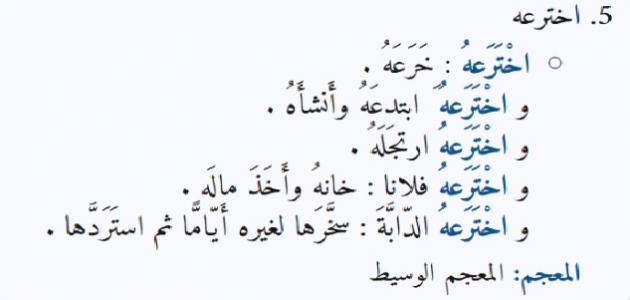 5. اخترعه
○ اخْتَرَعهُ : خَرَعَهُ .
و اخْتَرَعهُ َ ابتدعَهُ وأَنشأَهُ .
و اخْتَرَعهُ ارتجَلَهُ .
و اخْتَرَعهُ فلانا : خانهُ وأَخَذَ مالَه .
و اخْتَرَعهُ الدّابَّةَ : سخَّرَها لغيره أَيّامًا ثم استَرَدَّها .
المعجم: المعجم الوسيط